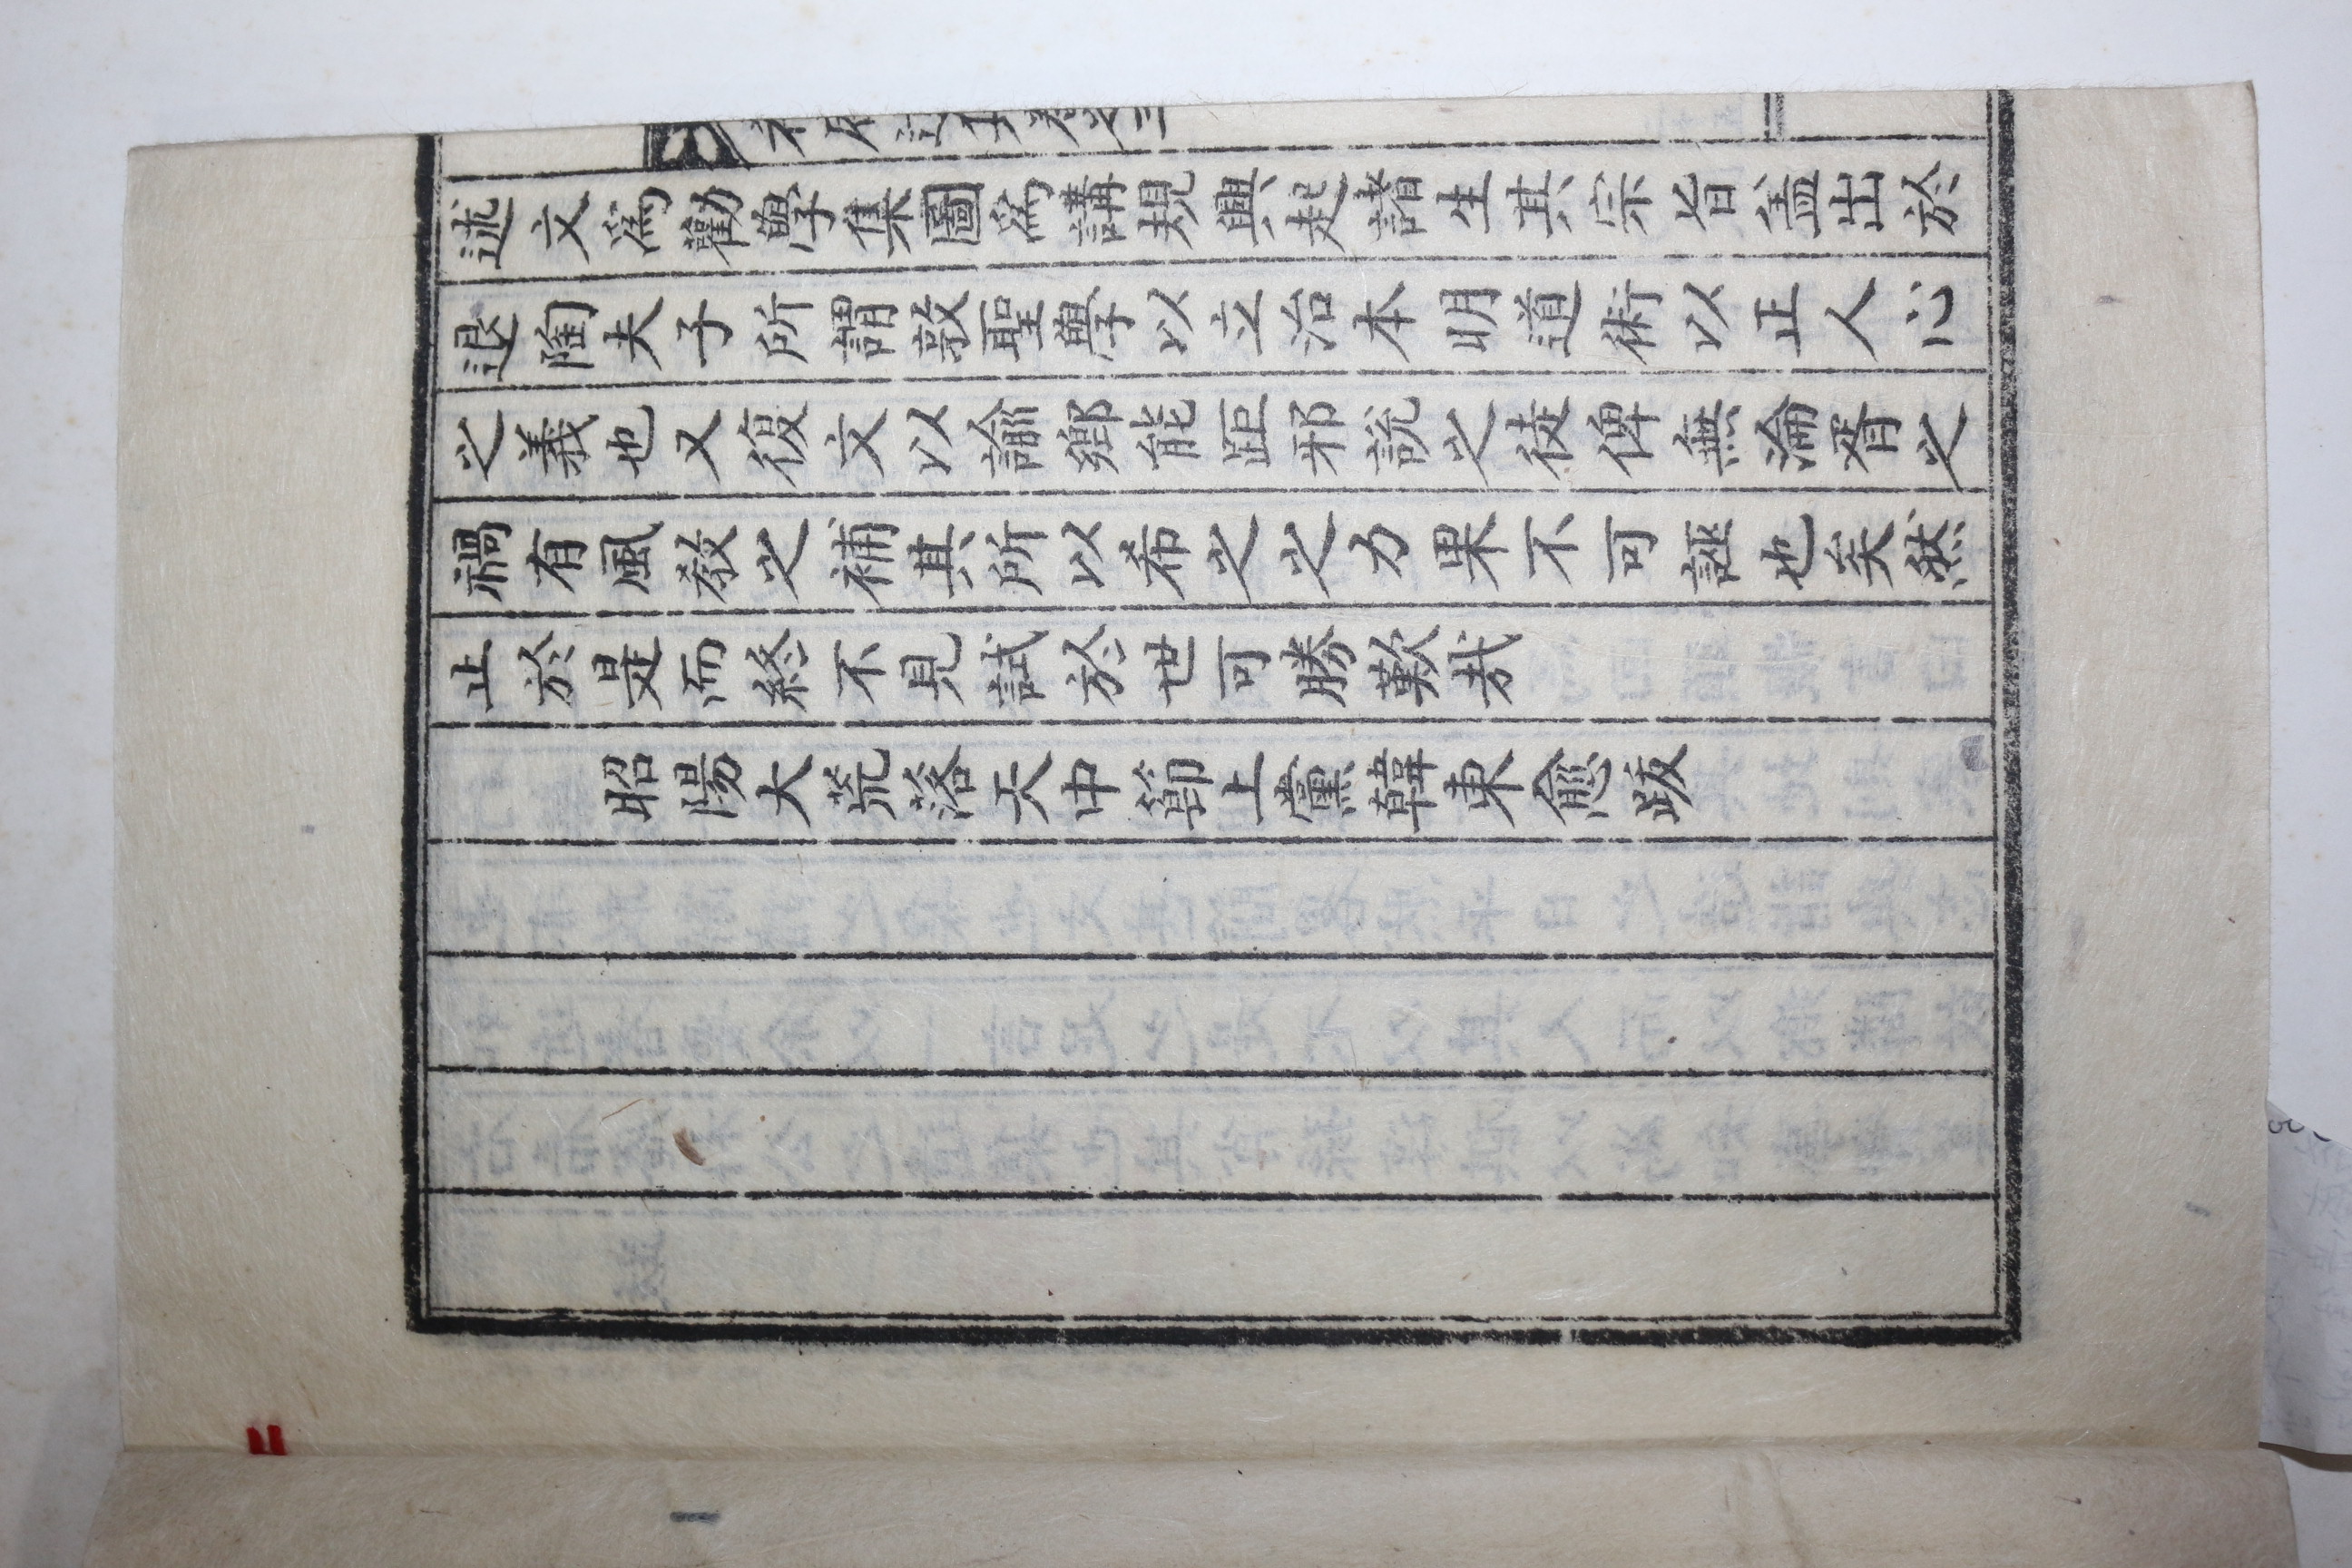 述文爲勸學集圖爲講規興起諸生其宗旨盖出於
退陶夫子所謂敦聖學以立治本明道術以正人心
之義也又復文以諭鄕能距邪說之徒俾無淪胥之
禍有風敎之補其所以希之之力果不可誣也矣然
止於是而終不見試於世可勝歎哉
昭陽大荒落天中節上黨韓東愈跋